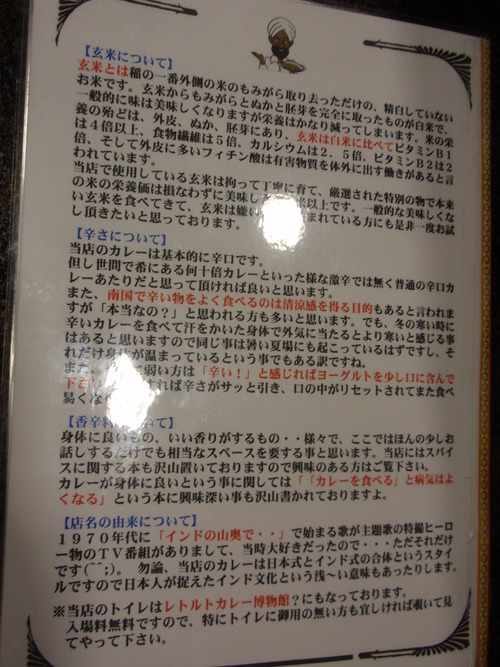 【玄米について】
玄米とは稲の一番外側の米のもみがら取り去っただけの、精白していない
お米です。玄米からもみがらとぬかと胚芽を完全に取ったものが白米で、
一般的に味は美味しくなりますが栄養はかなり減ってしまいます。米の栄
養の殆どは、外皮、ぬか、胚芽にあり、玄米は白米に比べてビタミンB1
は4倍以上、食物繊維は5倍、カルシウムは2.5倍、ビタミンB2は2
倍、そして外皮に多いフィチン酸は有害物質を体外に出す働きがあると言
われています。
当店で使用している玄米は拘って丁寧に育て、厳選された特別の物で本来
の米の栄養価は損なわずに美味し 米以上です。一般的な美味しくな
い玄米を食べてきて、玄米は嫌い まれている方にも是非一度お試
し頂きたいと思っております。
【辛さについて】
当店のカレーは基本的に辛口です。
但し世間で希にある何十倍カレーといった様な激辛では無く普通の辛口カ
レーあたりだと思って頂ければ良いと思います。
また、南国で辛い物をよく食べるのは清涼感を得る目的もあると言われま
すが「本当なの?」と思われる方も多いと思います。でも、冬の寒い時に
辛いカレーを食べて汗をかいた身体で外気に当たるとより寒いと感じる事
はあると思いますので同じ事は暑い夏場にも起こっているはずですし、そ
れだけ身体が温まっているという事でもある訳ですね。
また、 弱い方は「辛い!」と感じればヨーグルトを少し口に含んで
下さ すれば辛さがサッと引き、口の中がリセットされてまた食べ
易くな
【香辛料について】
身体に良いもの、いい香りがするもの・・様々で、ここではほんの少しお
話しするだけでも相当なスペースを要する事と思います。当店にはスパイ
スに関する本も沢山置いておりますので興味のある方はご覧下さい。
カレーが身体に良いという事に関しては「「カレーを食べる」と病気はよ
くなる」という本に興味深い事も沢山書かれておりますよ。
【店名の由来について】
1970年代に「インドの山奥で・・」で始まる歌が主題歌の特撮ヒーロ
ー物のTV番組がありまして、当時大好きだったので・・ただそれだけ
です(⌒⌒;)。 勿論、当店のカレーは日本式とインド式の合体というスタイ
ルですので日本人が捉えたインド文化という浅~い意味もあったりします。
※当店のトイレはレトルトカレー博物館?にもなっております。
入場料無料ですので、特にトイレに御用の無い方も宜しければ覗いて見
てやって下さい。